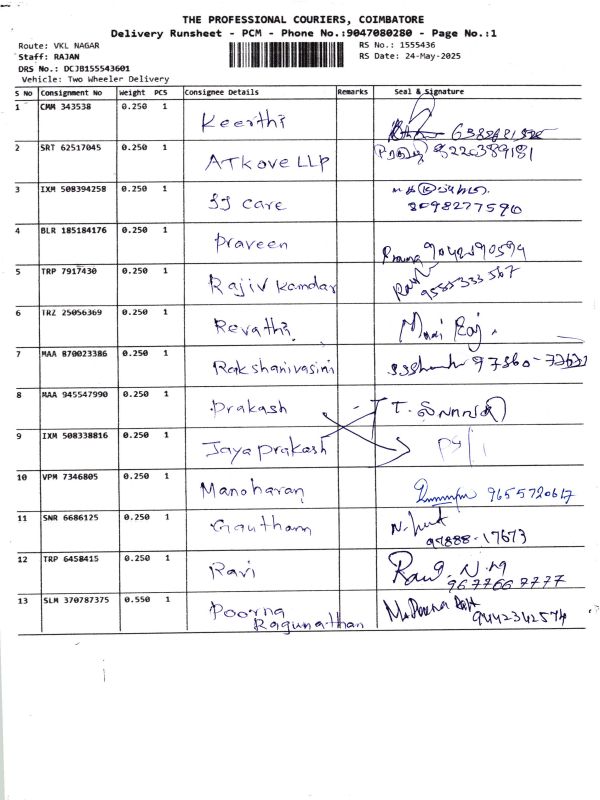 THE PROFESSIONAL COURIERS, COIMBATORE
Delivery Runsheet - PCM - Phone No.:9047080280 - Page No.:1
Route: VKL NAGAR RS No.: 1555436
Staff: RAJAN RS Date: 24-May-2025
DRS No.: DCJB155543601
Vehicle: Two Wheeler Delivery
S No Consignment No Weight PCS Consignee Details Remarks Seal & Signature
1 CMM 343538 0.250 1 Keerthi
2 SRT 62517045 0.250 1 ATKOVE LLP 8220389181
3 IXM 508394258 0.250 1 SJ Care
4 BLR 185184176 0.250 1 Praveen
5 TRP 7917430 0.250 1 Rajiv Kamdar 9587333567
6 TRZ 25056369 0.250 1 Revathi
7 MAA 870023386 0.250 1 Rakshanivasini
8 MAA 945547990 0.250 1 Prakash
9 IXM 508338816 0.250 1 Jayaprakash
10 VPM 7346805 0.250 1 Manoharan 9655720617
11 SNR 6686125 0.250 1 Gautham
12 TRP 6458415 0.250 1 Ravi
9677667777
13 SLM 370787375 0.550 1 Poorna
Ragunathan 9442342574